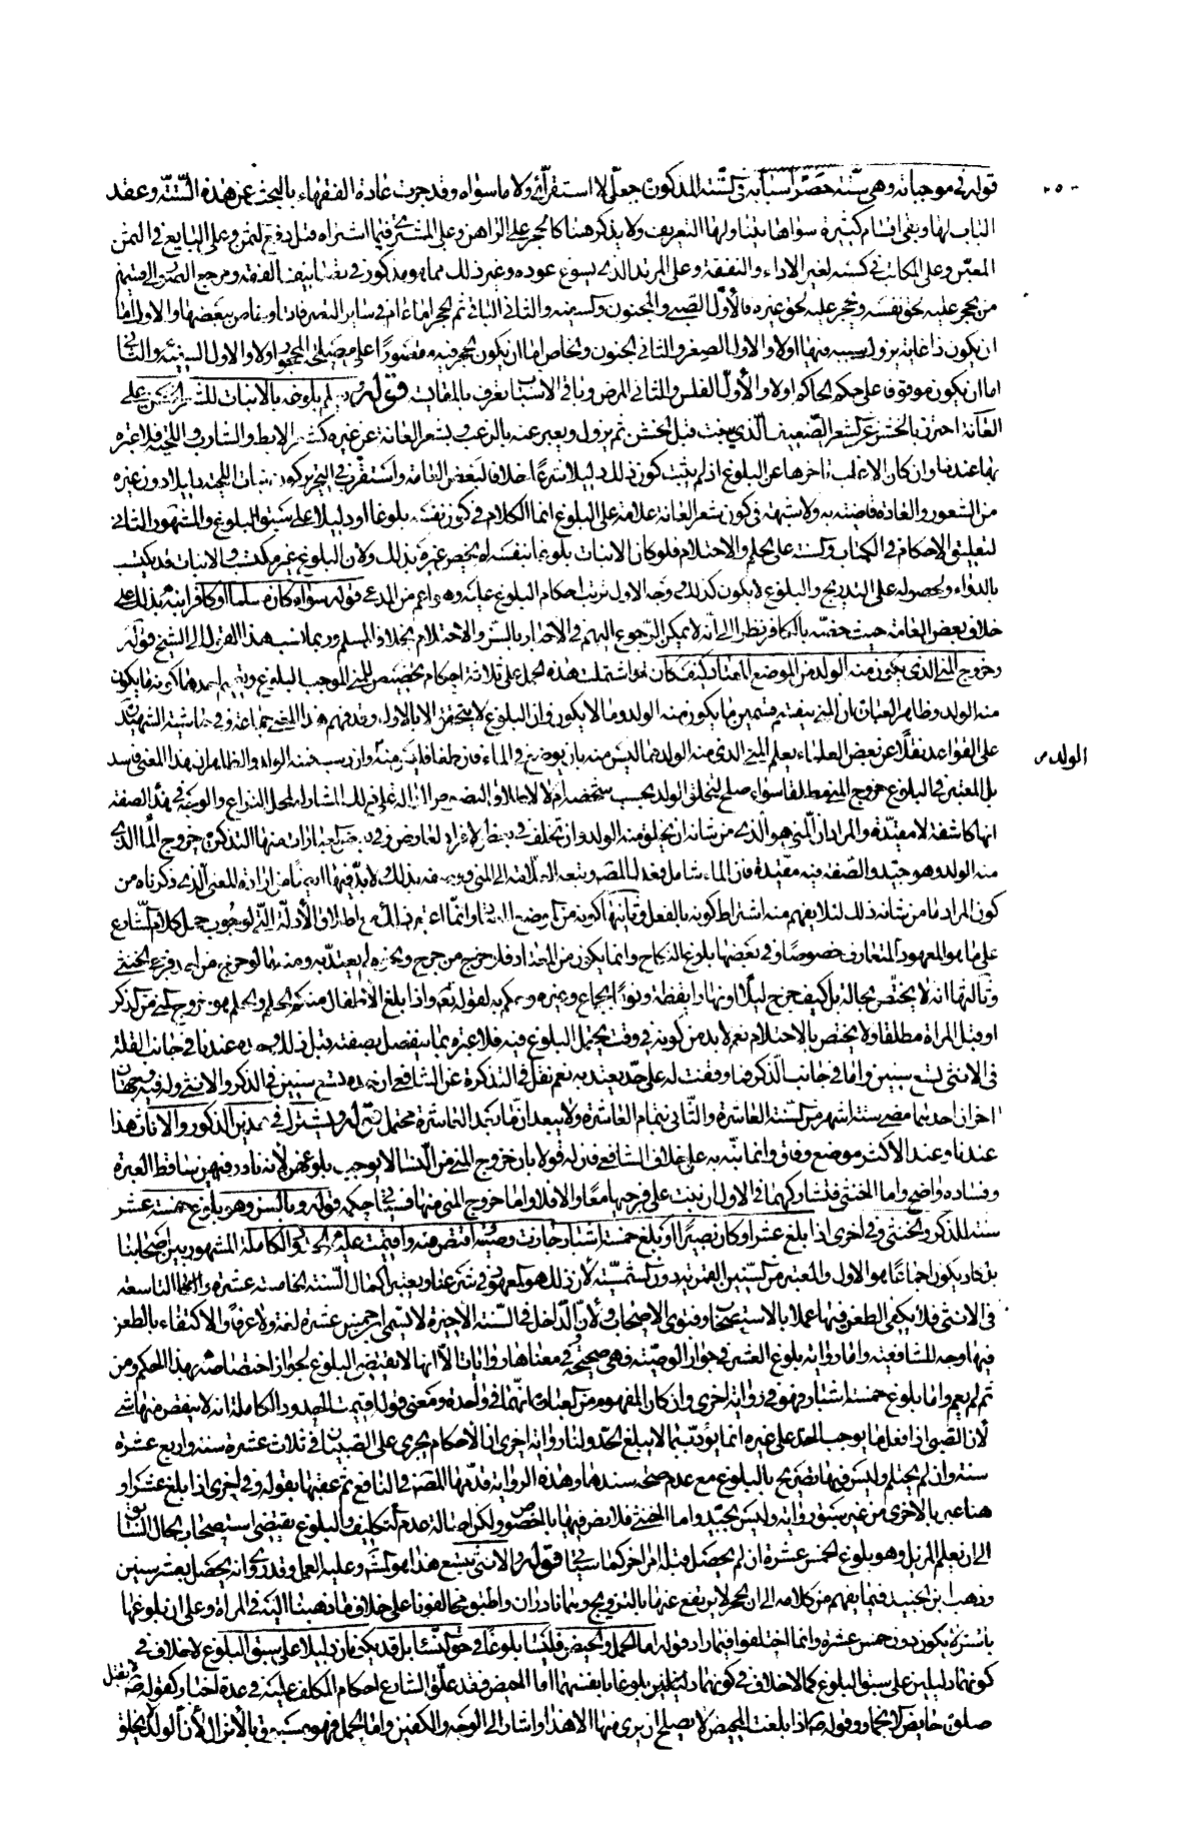 قوله في موجباته وهي ستة حصر أسبابه في الستة المذكورة جعلي لا استقرائي ولا ما سواه وقد جرت عادة الفقهاء بالبحث عن هذه الستة وعقد
٢٥٠
الباب لها وبقي أقسام كثيرة سواها يتناولها التعريف ولا يذكر هنا كالحجر على الراهن وعلى المشتري فيما اشتراه قبل دفع الثمن وعلى البايع في الثمن
المعين وعلى المكاتب في كسبه لغير الاداء والنفقة وعلى المرتد الذي يسوغ عوده وغير ذلك مما هو مذكور في تضاعيف الفقه ومرجع الستة إلى قسمين
من يحجر عليه لحق نفسه ومن يحجر عليه لحق غيره فالأول الصبي والمجنون والسفيه والثاني الباقي ثم الحجر إما عام في ساير التصرفات أو خاص ببعضها والاول إما
ان يكون ذا غاية يزول سببه فيها اولا والاول الصغر والثاني الجنون والخاص إما ان يكون الحجر فيه مقصورا على مصلحة المحجور اولا والاول السفيه والثاني
اما ان يكون موقوفا على حكم الحاكم اولا والأول الفلس والثاني المرض وباقي الاسباب تعرف بالمقايسة قوله ويعلم بلوغه بالانبات للشعر الخشن على
العانة احترز بالخشن عن الشعر الضعيف الذي ينبت قبل الخشن ثم يزول ويعبر عنه بالزغب وبشعر العانة عن غيره كشعر الابط والشارب واللحية فلا عبرة
بها عندنا وان كان الاغلب تأخرها عن البلوغ اذ لم يثبت كون ذلك دليلا شرعا خلافا لبعض العامة واستقرب في التحرير كون نبات اللحية دليلا دون غيره
من الشعور والعادة قاضية به ولا شبهة في كون شعر العانة علامة على البلوغ انما الكلام في كونه نفسه بلوغا او دليلا على سبق البلوغ والمشهور الثاني
لتعليق الاحكام في الكتاب والسنة على الحلم والاحتلام فلو كان الانبات بلوغا بنفسه لم يخص غيره بذلك ولان البلوغ غير مكتسب والانبات قد يكتسب
بالدواء ولحصوله على التدريج والبلوغ لا يكون كذلك ووجه الاول ترتب احكام البلوغ عليه وهو اعم من المدعى قوله سواء كان مسلما او كافرا نبه بذلك على
خلاف بعض العامة حيث خصه بالكافر نظرا إلى أنه لا يمكن الرجوع اليهم في الاخبار بالسن والاحتلام بخلاف المسلم وربما نسب هذا القول الى الشيخ قوله
وخروج المني الذي يكون منه الولد من الموضع المعتاد كيف كان قد اشتملت هذه الجمل على ثلاثة احكام تخصيص المني الموجب للبلوغ وتعميم احدها كونه ما يكون
منه الولد وظاهر العبارة ان المني ينقسم قسمين ما يكون منه الولد وما لا يكون وان البلوغ لا يتحقق الا بالاول وقد فهم هذا المعنى جماعة وفي حاشية الشهيد
على القواعد نقلا عن بعض العلماء يعلم المني الذي منه الولد مما ليس منه بان يوضع في الماء فان طفا فليس منه وان رسب فمنه الولد والظاهر ان هذا المعنى فاسد
الولد ص
بل المعتبر في البلوغ خروج المني مطلقا سواء صلح لتخلق الولد بحسب شخصه ام لا لاطلاق النصوص الدالة على ذلك
انها كاشفة لا مقيدة والمراد ان المني هو الذي من شانه ان يخلق منه الولد وان تخلف في بعض الافراد لعارض وفي بعض العبارات منها التذكرة خروج الماء الذي
منه الولد وهو جيد والصفة فيه مقيدة فان الماء شامل
كون المراد ما من شانه ذلك لئلا يفهم منه اشتراط كونه بالفعل وثانيها كونه من الموضع المعتاد وانما اعتبر ذلك مع اطلاق الأدلة لوجوب حمل كلام الشارع
على ما هو المعهود المتعارف خصوصا وفي بعضها بلوغ النكاح وانما يكون من المعتاد فلو خرج من جرح ونحوه لم يعتد به ومنه ما لو خرج من احد فرجي الخنثى
وثالثها انه لا يختص بحالة بل كيف خرج ليلا او نهارا يقظة ونوما بجماع وغيره وحكم به لقوله تعالى واذا بلغ الأطفال منكم الحلم والحلم هو خروج المني من الذكر
او قبل المرأة مطلقا ولا يختص بالاحتلام نعم لا بد من كونه في وقت يحتمل البلوغ فيه فلا عبرة بما ينفصل بصفته قبل ذلك وحده عندنا في جانب القلة
في الانثى تسع سنين واما في جانب الذكر فما وقفت له على حد يعتد به نعم نقل في التذكرة عن الشافعي ان حده تسع سنين في الذكر والانثى وله فيه وجهان
اخران احدهما مضي ستة اشهر من السنة العاشرة والثاني تمام العاشرة ولا يبعد ان ما بعد العاشرة محتمل قوله ويشترك في هذين الذكور والاناث هذا
عندنا وعند الأكثر موضع وفاق وانما نبه به على خلاف الشافعي فان له قولا بان خروج المني من النساء لا يوجب بلوغهن لانه نادر فيهن ساقط العبرة
وفساده واضح واما الخنثى فتشاركهما في الاول ان نبت على فرجيها معا والا فلا واما خروج المني منها فسيأتي حكمه قوله وبالسن وهو بلوغ خمسة عشر
سنة للذكر والخنثى وفي اخرى اذا بلغ عشرا وكان بصيرا او بلغ خمسة اشبار جازت وصيته اقتص منه واقيمت عليه الحدود الكاملة المشهور بين اصحابنا
بل كاد يكون اجماعا هو الاول والمعتبر من السنين القمرية دون الشمسية لان ذلك هو المعهود في شرعنا ويعتبر اكمال السنة الخامسة عشرة والتاسعة
في الانثى فلا يكفي الطعن فيها عملا بالاستصحاب وفتوى الاصحاب ولأن الداخل في السنة الاخيرة لا يسمى ابن خمس عشرة لغة ولا عرفا والاكتفاء بالطعن
فيها وجه للشافعية واما رواية بلوغ العشر في جواز الوصية فهي صحيحة وفي معناها روايات الا انها لا تقتضي البلوغ لجواز اختصاصه بهذا الحكم ومن
ثم لم يعم واما بلوغ خمسة اشبار فهو في رواية اخرى وان كان المفهوم من العبارة انهما في واحدة ومعنى قوله اقيمت الحدود الكاملة انه لا ينقص منها شي
لأن الصبي اذا فعل ما يوجب الحد على غيره انما يؤدب بما لا يبلغ الحد ولنا رواية اخرى ان الأحكام يجري على الصبيان في ثلاث عشرة سنة واربع عشرة
سنة وان لم يحتلم وليس فيها تصريح بالبلوغ مع عدم صحة سندها وهذه الرواية قدمها المصنف في النافع ثم عقبها بقوله وفي اخرى اذا بلغ عشرا و
هنا عبر بالاخرى من غير سبق رواية وليس بجيد واما الخنثى فلا نص فيها بالخصوص ولكن اصالة عدم التكليف والبلوغ يقتضي استصحاب الحال السابق
الى ان يعلم المزيل وهو بلوغ الخمس عشرة ان لم يحصل قبله امر اخر كما سيأتي قوله والانثى بتسع هذا هو المشهور وعليه العمل وقد روي انه يحصل بعشر سنين
وذهب ابن الجنيد فيما يفهم من كلامه الى ان الحجر لا يرتفع عنها الا بالتزويج وهما نادران واطبق مخالفونا على خلاف ما ذهبنا اليه في المرأة وعلى ان بلوغها
بالسن لا يكون دون خمس عشرة وانما اختلفوا فيما زاد قوله اما الحمل والحيض فليسا بلوغا في حق النساء بل قد يكونان دليلا على سبق البلوغ لا خلاف في
كونهما دليلين على سبق البلوغ كما لا خلاف في كونهما دليلين بلوغا بانفسهما اما الحيض فقد علق الشارع احكام المكلف عليه في عدة اخبار كقوله ص لا تقبل
صلوة حايض الا بخمار وقوله ص اذا بلغت المحيض لا يصلح ان يرى منها الا هذا واشار الى الوجه والكفين واما الحمل فهو مسبوق بالانزال لأن الولد لا يخلق